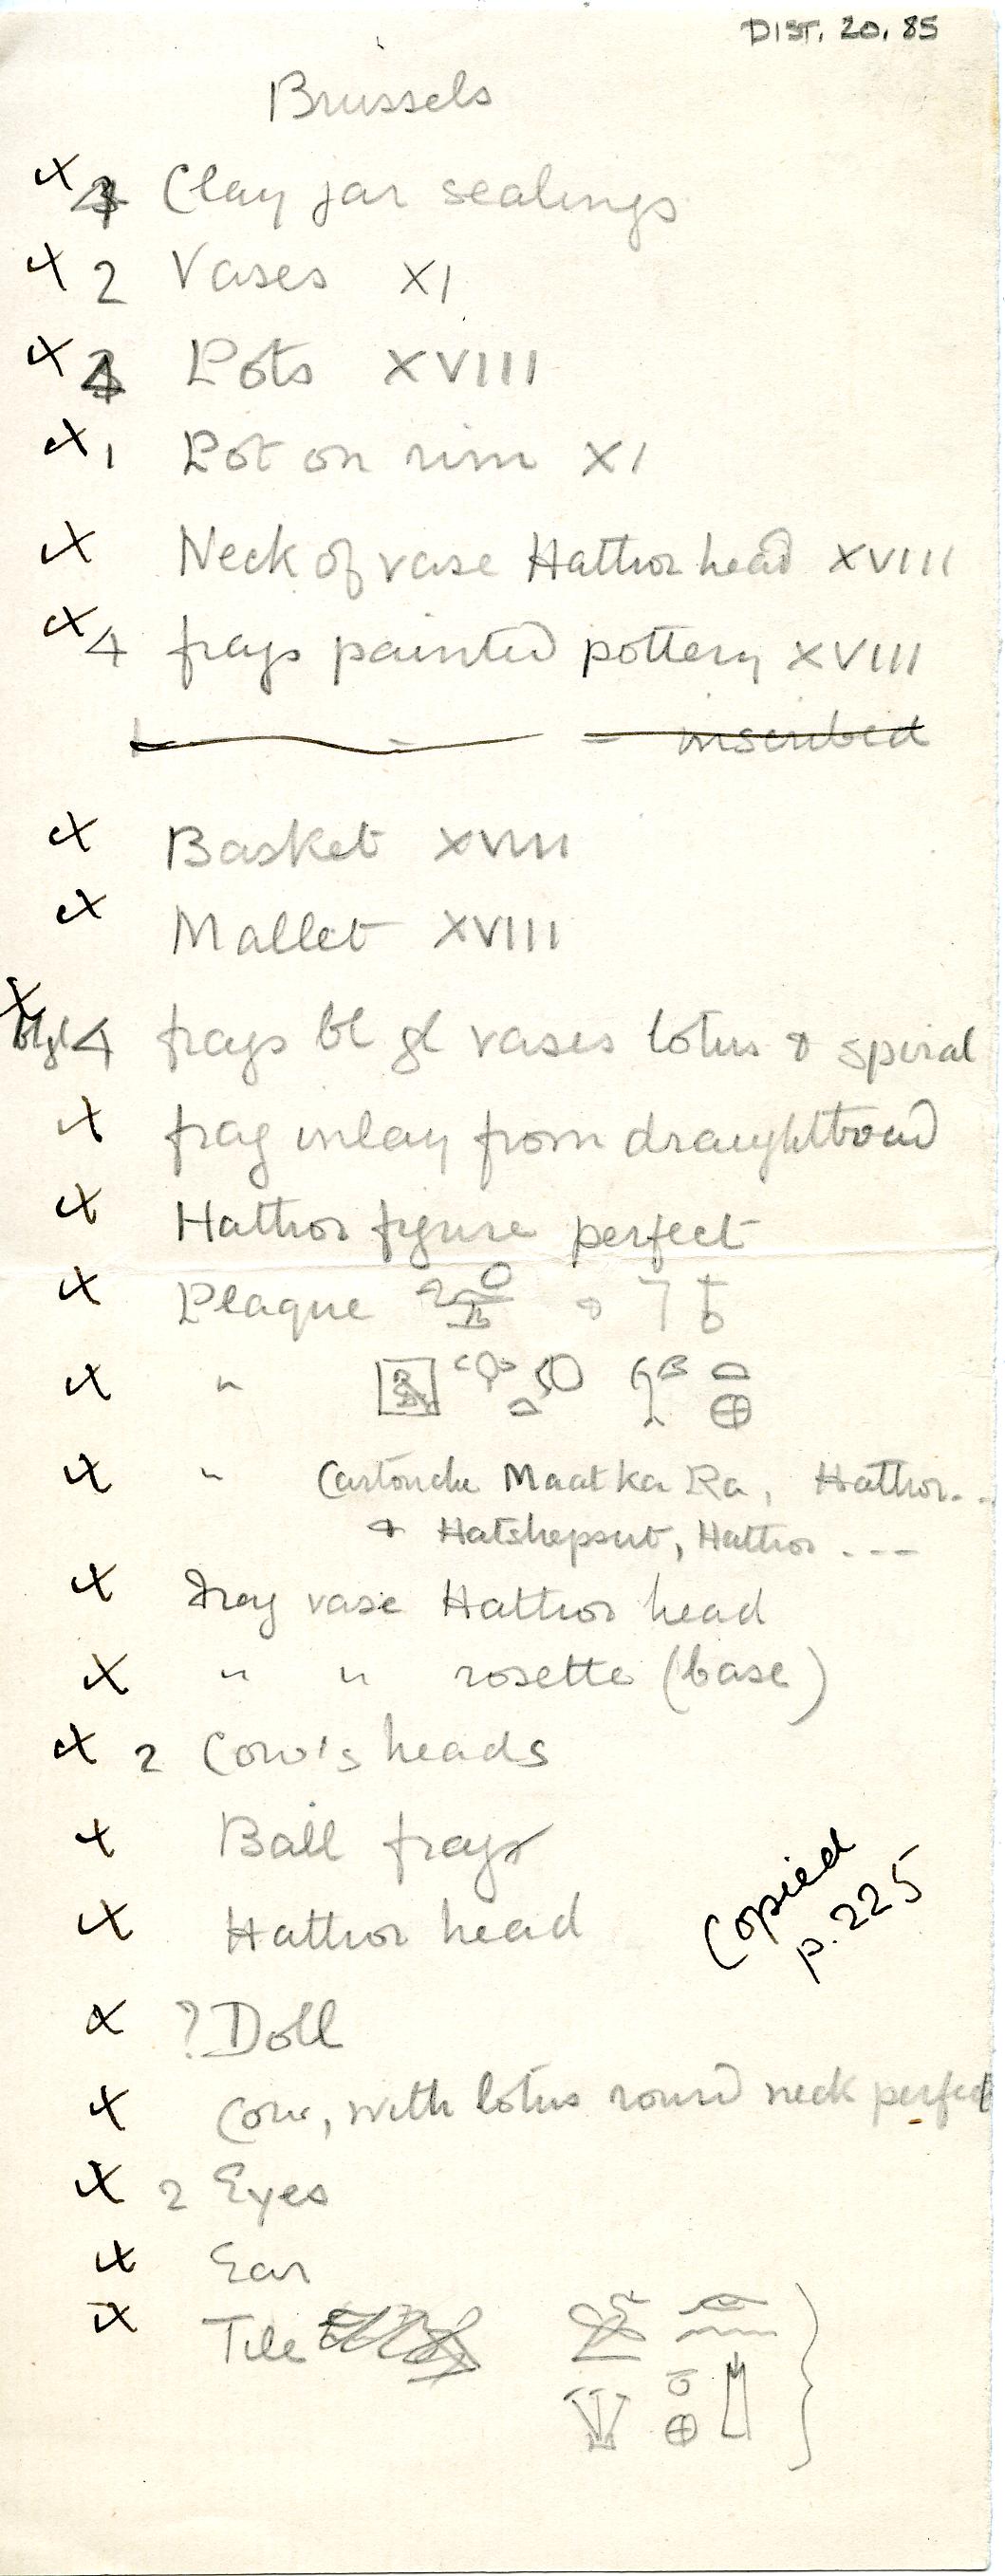 DIST. 20. 85
Brussels
x 4 Clay jar sealings
x 2 Vases XI
x Pots XVIII
x 1 Pot on rim XI
x Neck of vase Hathor head XVIII
x 4 frags painted pottery XVIII
inscribed
x Basket XVIII
x Mallet XVIII
x bl gl 4 frags bl gl vases lotus & spiral
x frag inlay from draughtboard
x Hathor figure perfect
x Plaque
x "
x " Cartouche Maat ka Ra, Hathor...
+ Hatshepsut, Hathor ---
x Frag vase Hathor head
x " " rosette (base)
x 2 Cow's heads
x Ball frags
x Hathor head
Copied
p. 225
x ? Doll
x Cow, with lotus round neck perfect
x 2 Eyes
x Ear
x Tile